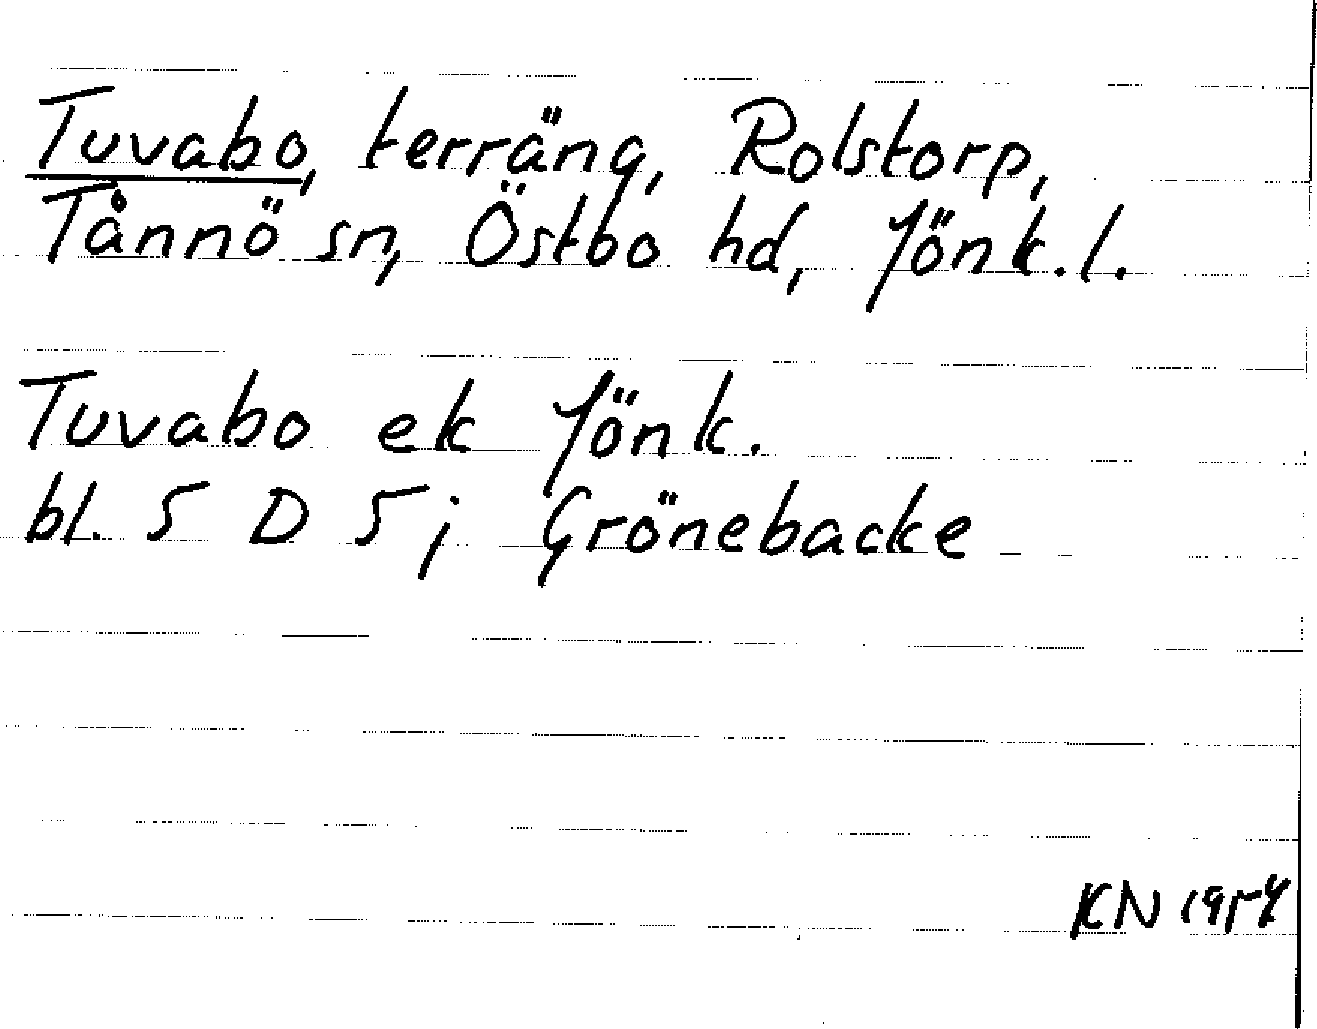 Tuvabo, terräng, Rolstorp,
Tånnö sn, Östbo hd, Jönk.l.
Tuvabo ek Jönk.
bl. 5 D 5j Grönebacke
KN 1954